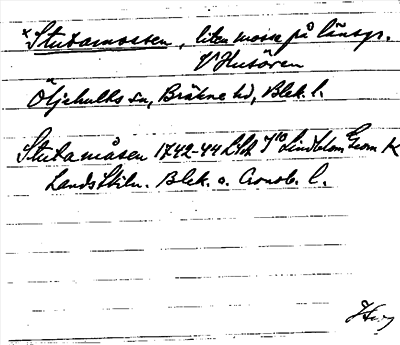 × Stutamossen, liten mosse på länsgr.
V Husören
Öljehults sn, Bräkne hd, Blek. l.
Stutamåsen 1742-44 Lindblom Geom K
Landsskiln. Blek. o. Cronob. l.